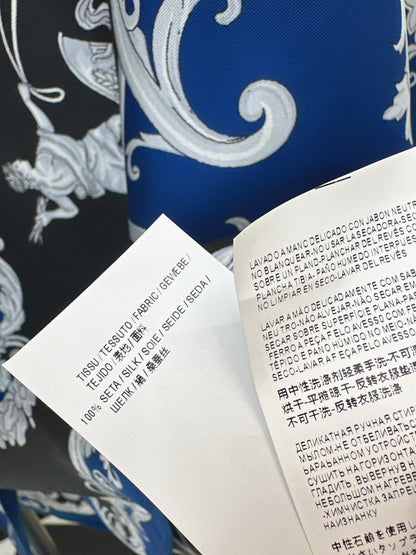 TISSU / TESSUTO / FABRIC / GEWEBE /
TEJIDO / 表地 / 面料
100% SETA / SILK / SOIE / SEIDE / SEDA /
ШЕЛК / 絹 / 桑蚕丝
LAVADO A MANO DELICADO CON JABON NEUTR
NO BLANQUEAR-NO USAR LA SECADORA-S
SOBRE UN PLANO-PLANCHAR DEL REVÉS CO
PLANCHA TIBIA- PAÑO HÚMEDO INTERPUE
NO LIMPIAR EN SECO-LAVAR DEL REVÉS
LAVAR A MÃO DELICADAMENTE COM SA
NEUTRO-NÃO ALVEJAR-NÃO SECAR EM
SECAR SOBRE SUPERFÍCIE PLANA-PAS
FERRO A FEÇA PELO AVESSO COM FER
TÉPIDO E PANO HÚMIDO NO MEIO-N
SECO-LAVAR A FEÇA PELO AVESSO
用中性洗涤剂轻柔手洗-不可漂
烘干-平摊晾干-反转衣服垫湿
不可干洗-反转衣服洗涤
ДЕЛИКАТНАЯ РУЧНАЯ СТИР
МЫЛОМ-НЕ ОТБЕЛИВАТЬ-
БАРАБАННОМ УСТРОЙСТВ
СУШИТЬ НА ГОРИЗОНТА
ГЛАДИТЬ, ВЫВЕРНУВ Н
НЕБОЛЬШОМ НАГРЕВЕ
-ХИМЧИСТКА ЗАПРЕ
НАИЗНАНКУ
中性石鹸を使用